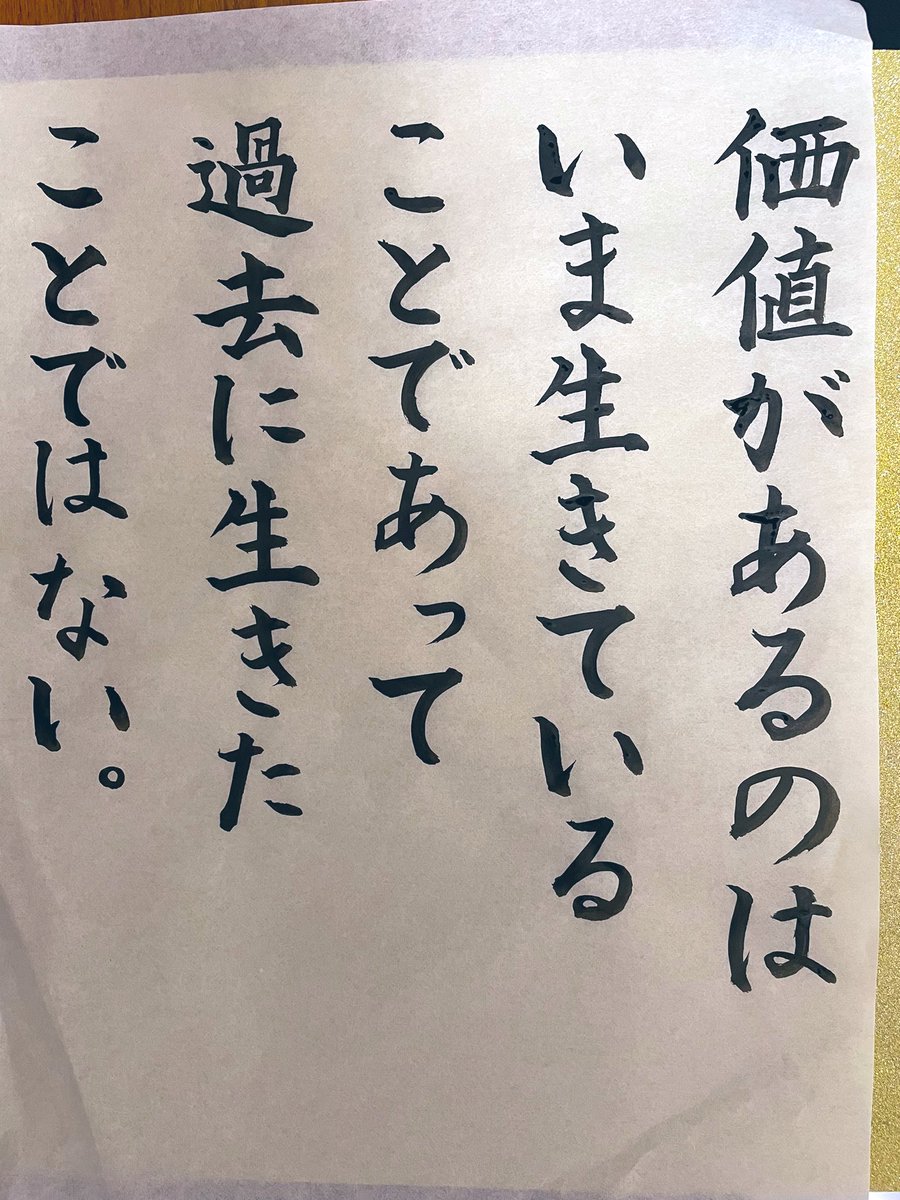 価値があるのは
いま生きている
ことであって
過去に生きた
ことではない。